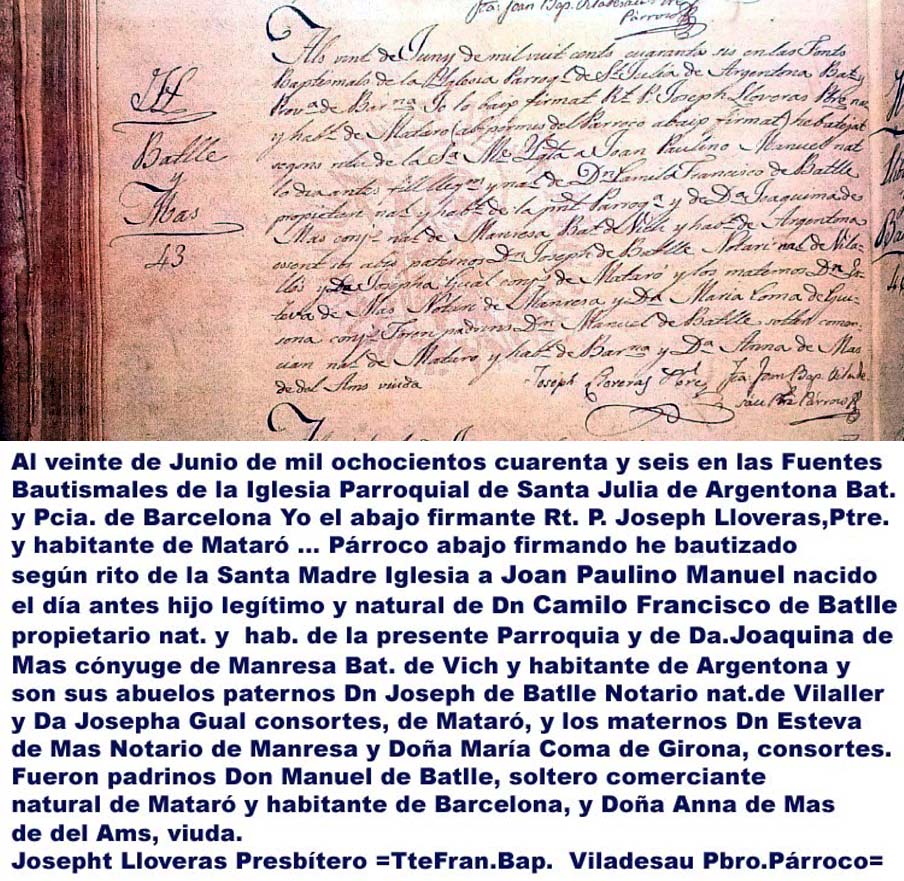 Fra: Joan Bap. Viladesau Pbre
Párroco
Als vint de Juny de mil vuit cents cuaranta sis en las Fonts
Baptismals de la Iglesia Parroql de St. Juliá de Argentona Bat. y
Prova de Barna Jo lo baix firmat Rt. P. Joseph Lloveras Pbre. nal.
y habt. de Mataró (ab permis del Párroco abaix firmat) he batejat
segons rito de la Sa. Me. Igta a Joan Paulino Manuel nat
lo dia antes fill llegm. y nal. de Dn Camilo Francisco de Batlle
propietari nal. y habt. de la pnt Parroqa y de Da Joaquima de
Mas conjs. nal. de Manresa Bat de Vich y habt. de Argentona
essent sos abis paterns Dn Joseph de Batlle Notari nal. de Vila-
ller y Da Josepha Gual conjs. de Mataró y los materns Dn Es-
teva de Mas Notari de Manresa y Da Maria Coma de Gi-
rona conjs. Foren padrins Dn Manuel de Batlle solter comer-
ciant nal. de Mataró y habt. de Barna y Da Anna de Mas
de del Ams viuda
Joseph Lloveras Pbre
Fra. Joan Bap. Vilade-
sau Pbre Párroco
Batlle
y
Mas
43
Al veinte de Junio de mil ochocientos cuarenta y seis en las Fuentes
Bautismales de la Iglesia Parroquial de Santa Julia de Argentona Bat.
y Pcia. de Barcelona Yo el abajo firmante Rt. P. Joseph Lloveras,Ptre.
y habitante de Mataró ... Párroco abajo firmando he bautizado
según rito de la Santa Madre Iglesia a Joan Paulino Manuel nacido
el día antes hijo legítimo y natural de Dn Camilo Francisco de Batlle
propietario nat. y hab. de la presente Parroquia y de Da.Joaquina de
Mas cónyuge de Manresa Bat. de Vich y habitante de Argentona y
son sus abuelos paternos Dn Joseph de Batlle Notario nat.de Vilaller
y Da Josepha Gual consortes, de Mataró, y los maternos Dn Esteva
de Mas Notario de Manresa y Doña María Coma de Girona, consortes.
Fueron padrinos Don Manuel de Batlle, soltero comerciante
natural de Mataró y habitante de Barcelona, y Doña Anna de Mas
de del Ams, viuda.
Josepht Lloveras Presbítero =TteFran.Bap. Viladesau Pbro.Párroco=